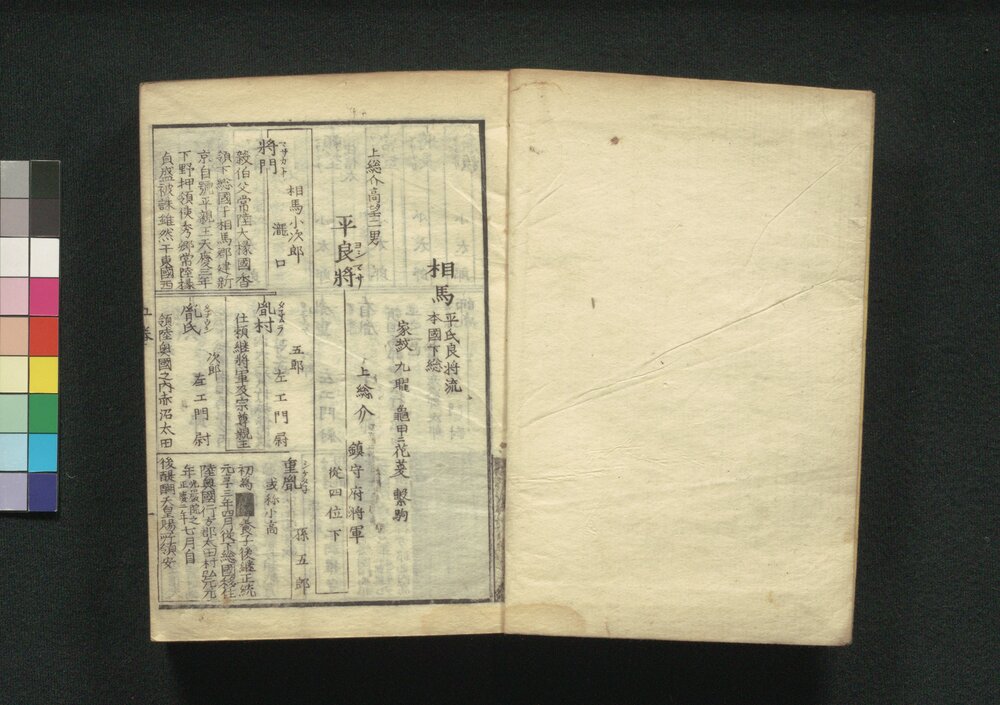 相馬
平氏良将流
本國下総
家紋 九曜 亀甲ニ花菱 繋駒
上総介高望二男
平良将
ヨシマサ
上総介
鎮守府将軍
従四位下
将門
マサカト
相馬小次郎
瀧口
殺伯父常陸大掾國香
領下総國于相馬郡建新
京自號平親王天慶三年
下野押領使秀郷常陸掾
貞盛被誅雖然于東國西
胤村
五郎
左エ門尉
仕頼継将軍及宗尊親王
胤氏
次郎
左エ門尉
領陸奥國之内赤沼太田
重胤
シケタネ
孫五郎
或称小高
初為
養子後継正統
元亨三年四月従下総國移住
陸奥國行方郡太田村
年
七月自
後醍醐天皇賜
領安